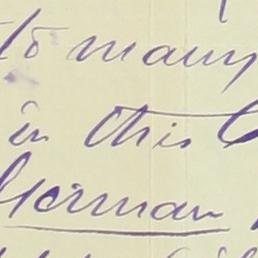 to many
in this
German